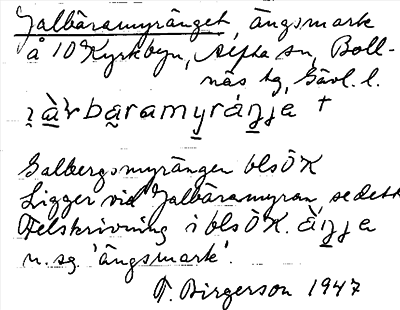 Galbäramyränget, ängsmark
å 10 Kyrkbyn, Alfta sn, Boll-
näs tg, Gävl. l.
Galbergsmyrängen blsÖK
Ligger vid Galbäramyran, se detta
Felskrivning i blsÖK.
n. sg. 'ängsmark'.
F. Birgerson 1947